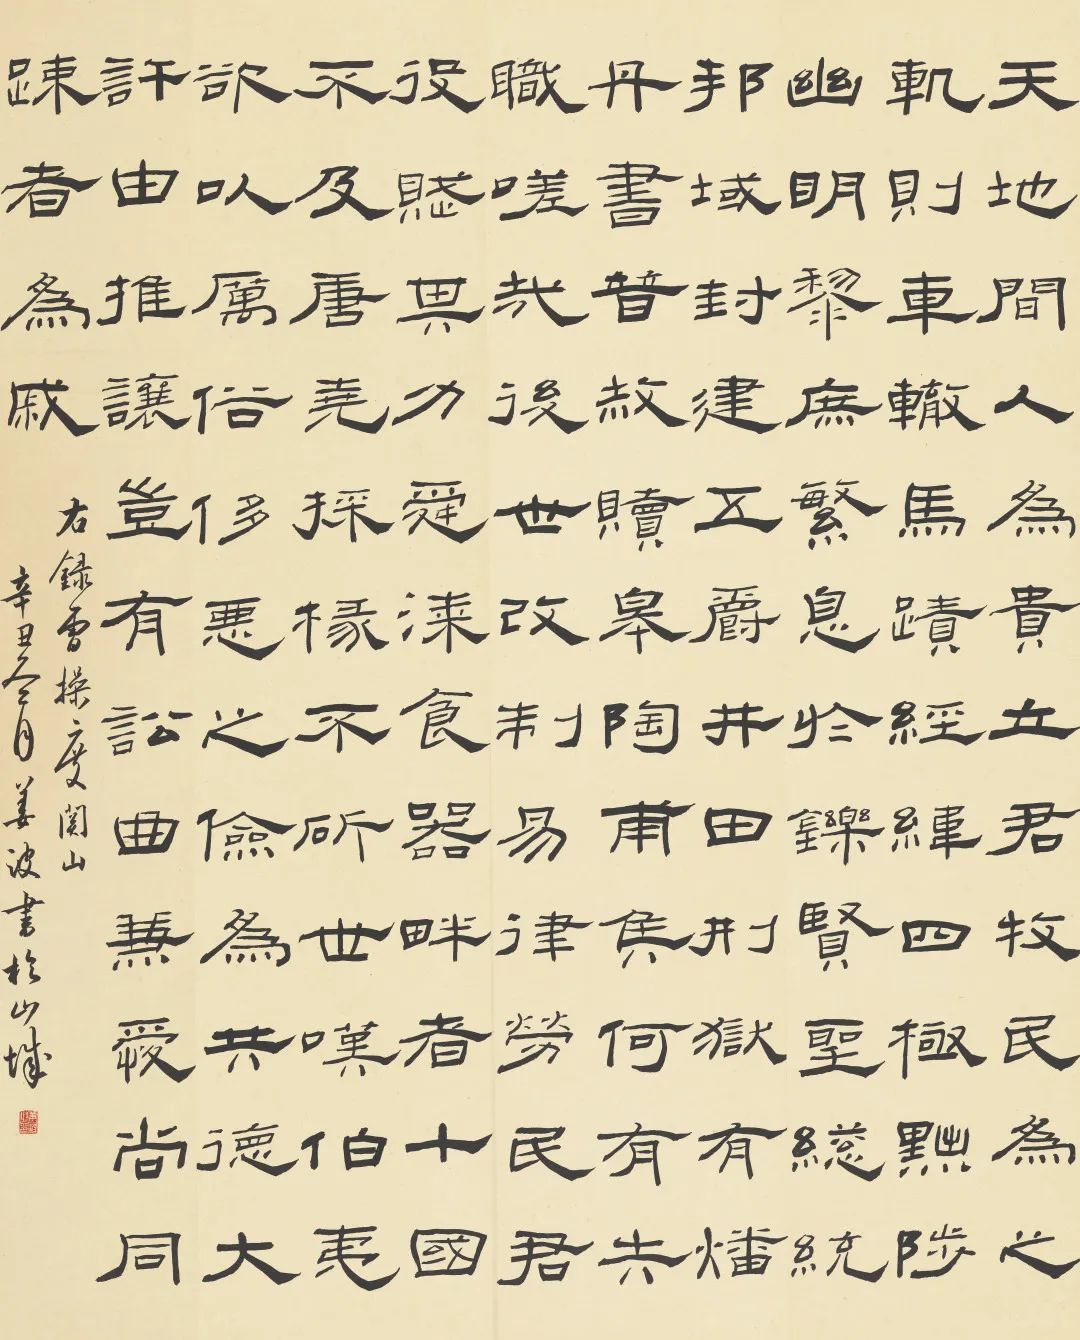 天地間人為貴立君牧民為之
軌則車轍馬蹟經緯四極黜陟
幽明黎庶繁息於鑠賢聖總統
邦域封建五爵井田刑獄有燔
丹書普赦贖皋陶甫侯何有失
職嗟哉後世改制易律勞民君
役賦其力舜漆食器畔者十國
不及唐堯採椽不斫世嘆伯夷
欲以厲俗侈惡之儉為共德大
許由推讓豈有訟曲兼愛尚同
疎者為戚
右錄曹操度關山
辛丑八月姜波書於山城